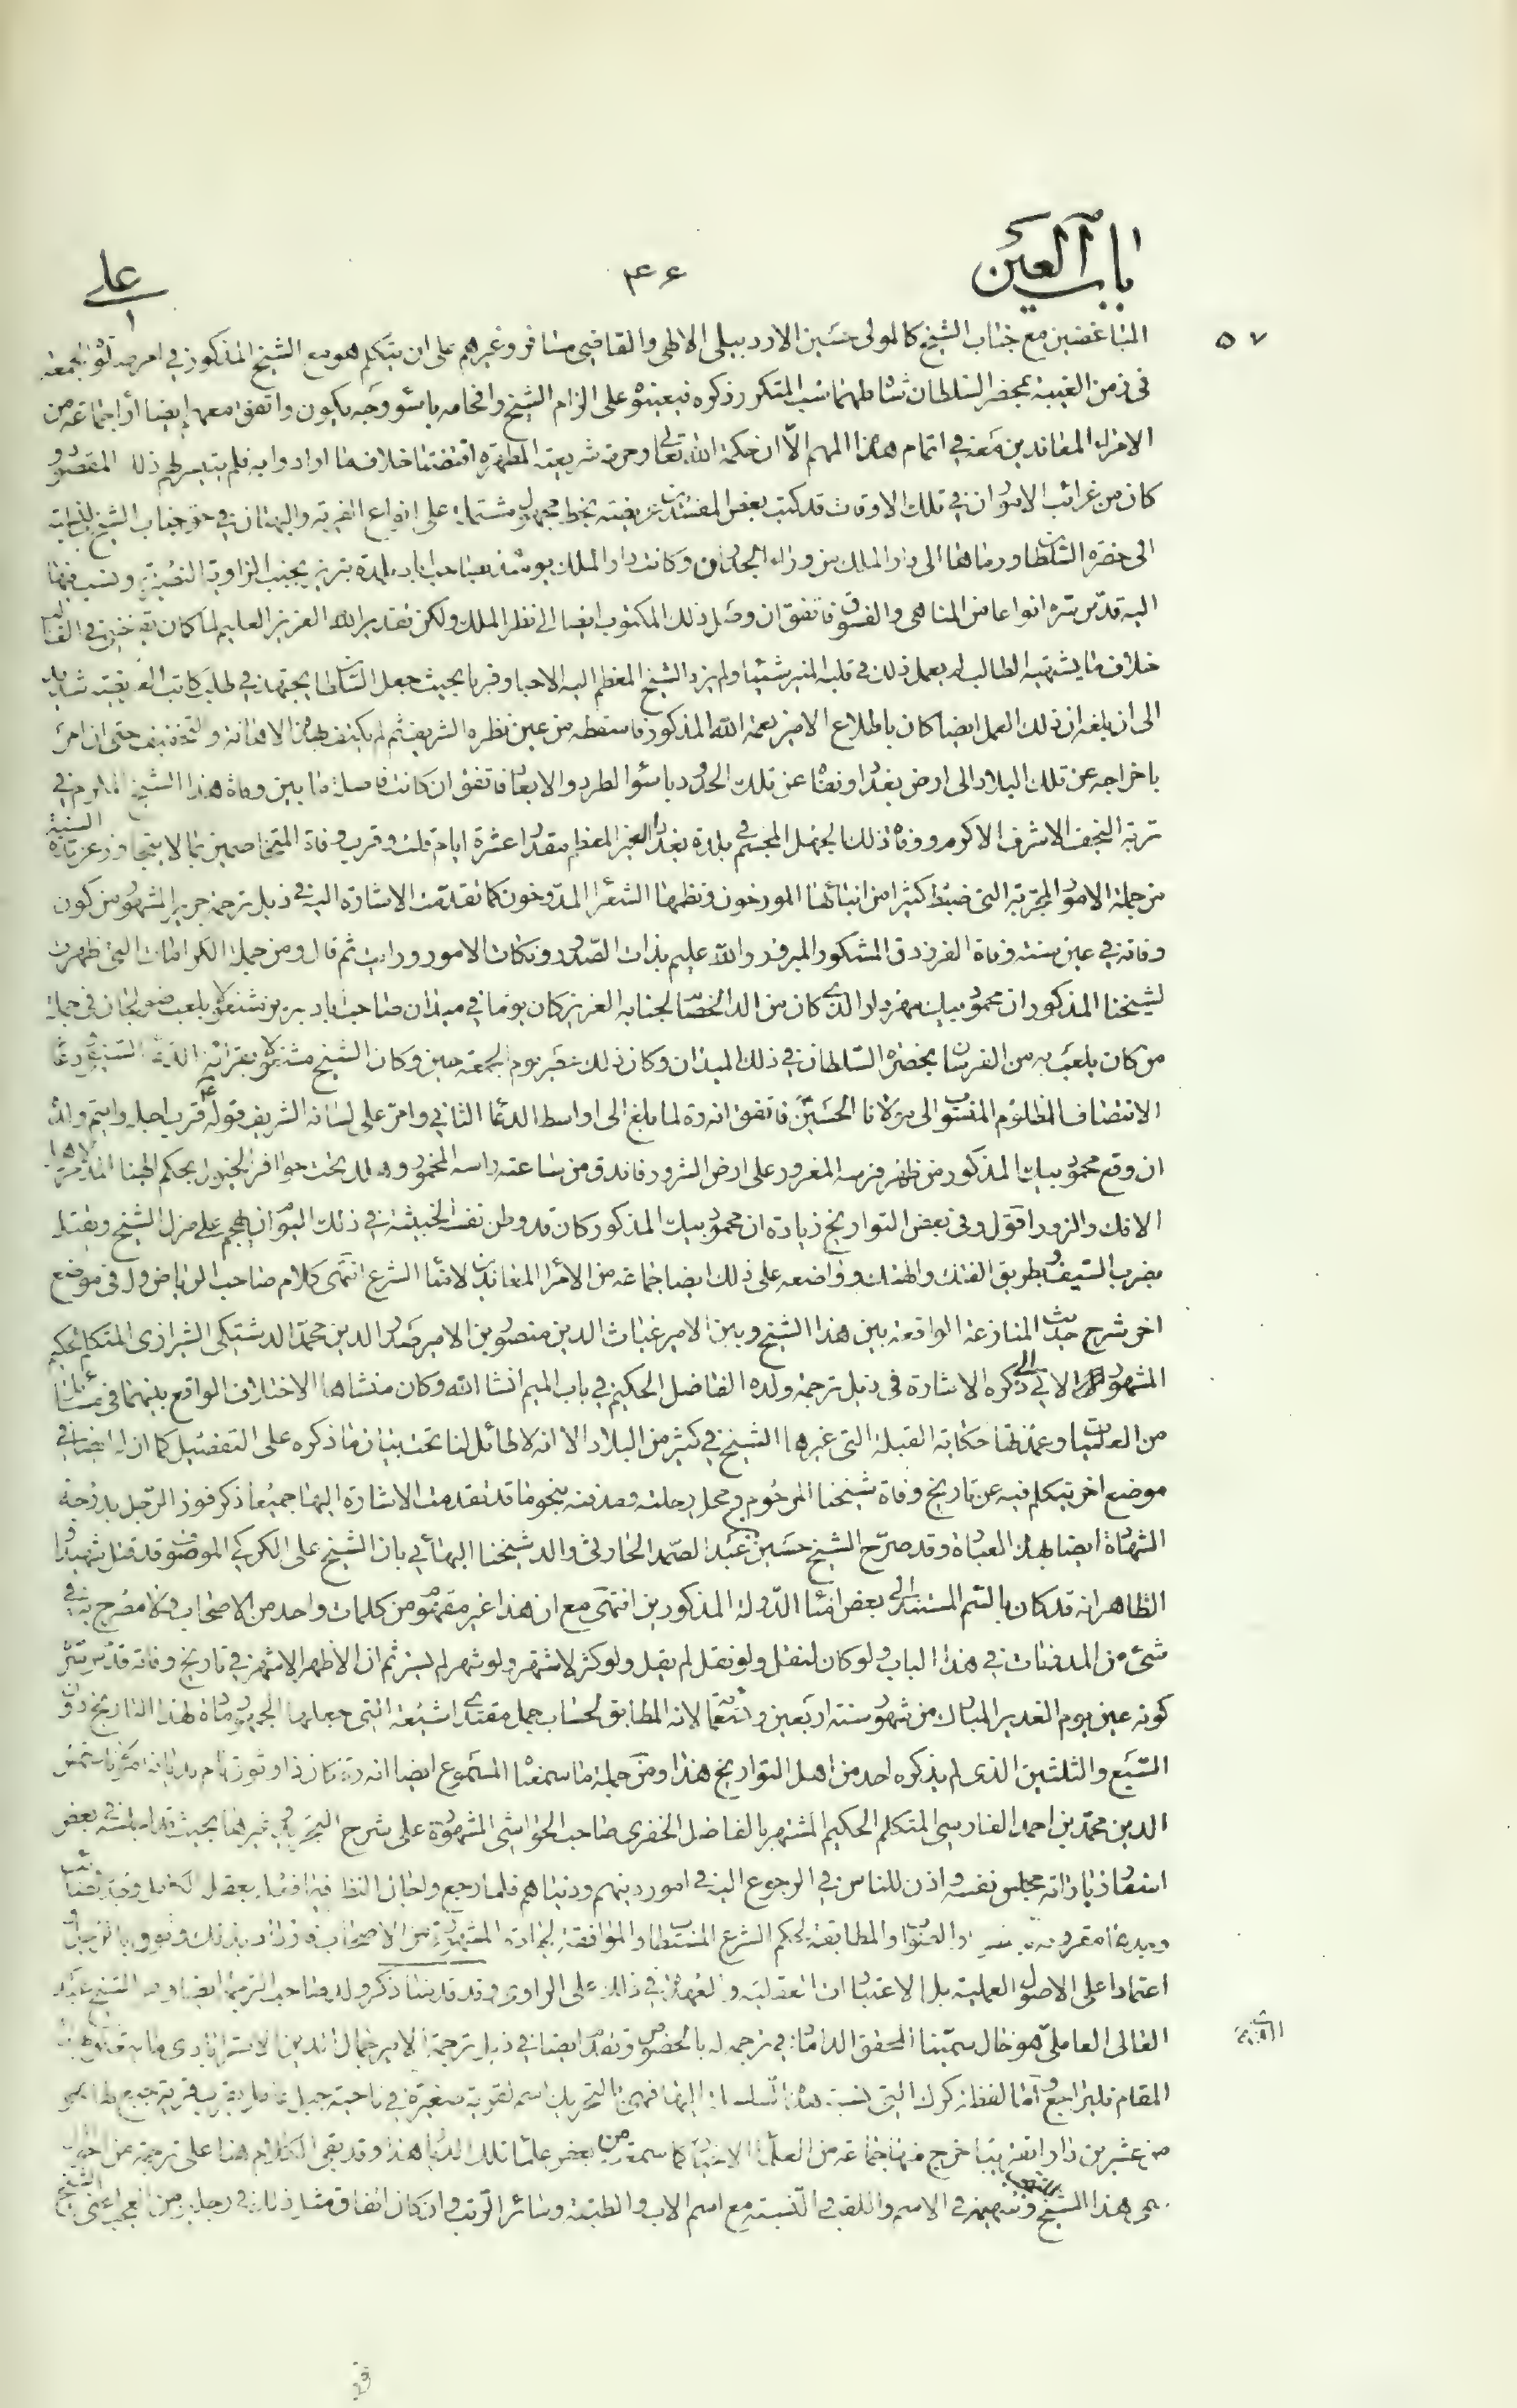 باب العین
۴۶
علی
۵۷
المباغضين مع جناب الشيخ كالمولى حسين الاردبيلى الالهى والقاضى مسافر وغيرهم على ان يتكلم هو مع الشيخ المذكور فى امر صلوة الجمعة
فى زمن الغيبة بمحضر السلطان شاه طهماسب المتكرر ذكره فيعينوه على الزام الشيخ وافحامه باسوء وجه يكون واتفق معهم ايضا جماعة من
الامراء المعاندين معه فى اتمام هذا المهم الّا ان حكمة الله تعالى وحرمة شريعته المطهرة اقتضتا خلاف ما ارادوا به فلم يتيسر لهم ذلك المقصود و
كان من غرائب الامور ان فى تلك الاوقات قد كتب بعض المفسدين عريضة بخط مجهول مشتملة على انواع الفرية والبهتان فى حق جناب الشيخ
الى حضرة السلطان ورماها الى دار الملك من وراء الجدران وكانت دار الملك يومئذ بصاحب اباد بلدة تبريز بجنب الزاوية النصرية ونسب فيها
اليه قدّس سره انواعا من المناهى والفسوق فاتفق ان وصل ذلك المكتوب ايضا الى نظر الملك ولكن بتقدير الله العزيز العليم لما كان
خلاف ما يشتهيه الطالب لم يعمل ذلك فى قلبه المنير شيئا ولم يزد الشيخ المعظم اليه الا حبا وقربا بحيث جعل السلطان يجتهد فى طلب كاتب العريضة
الى ان بلغه ان ذلك العمل ايضا كان باطلاع الامير نعمة الله المذكور فاسقطه من عين نظره الشريف ثم لم يكتف بهذه الاهانة والتخفيف حتى ان امر
باخراجه عن تلك البلاد الى ارض بغداد ونفاه عن تلك الحدود باسوء الطرد والابعاد فاتفق ان كانت فاصلة ما بين وفاة هذا الشيخ المرحوم فى
تربة النجف الاشرف الاكرم ووفاة ذلك الجهل المجسّم فى بلدة بغداد الغير المعظم مقدار عشرة ايام قلت وقرب وفاة المتخاصمين بما لا يتجاوز عن السنة
من جملة الامور المجربة التى ضبط كثيرا من انبائها المورخون ونظمها الشعراء المدوّنون كما تقدمت الاشارة اليه فى ذيل ترجمة جرير المشهور من كون
وفاته فى عين سنة وفاة الفرزدق المشكور المبرور والله عليم بذات الصدور ونكات الامور ورايت ثم قال ومن جملة الكرامات التى ظهرت
لشيخنا المذكور ان محمود بيك مهردار الذى كان من الد الخصماء لجنابه العزيز كان يوما فى ميدان صاحب اباد تبريز مشغولا يلعب الصولجان فى جملة
من كان يلعب به من الفرسان بحضرة السلطان فى ذلك الميدان وكان ذلك عصر يوم الجمعة حين وكان الشيخ مشغولا بقرائة السيفى ودعاء
الانتصاف للمظلوم المنسوب الى مولانا الحسين ع فاتفق انه ره لما بلغ الى اواسط الدعاء الثانى وامرّ على لسانه الشريف قوله قرب اجله وايتم ولده
ان وقع محمود بيك المذكور من ظهر فرسه المغرور على ارض الشرور فاندق من ساعته راسه المخمور تحت حوافر الخيول بحكم الهنا
الافك والزور اقول وفى بعض التواريخ زيادة ان محمود بيك المذكور كان قد وطن نفسه الخبيثة فى ذلك اليوم ان يهجم على منزل الشيخ ويقتله
بضرب السيف بطريق الفتك والهتك وواضعه على ذلك ايضا جماعة من الامراء المعاندين لامناء الشرع انتهى كلام صاحب الرياض وله فى موضع
اخر شرح حديث المنازعة الواقعة بين هذا الشيخ وبين الامير غياث الدين منصور بن الامير صدر الدين محمد الدشتكى الشيرازى المتكلم الحكيم
المشهور الاتى الى ذكره الاشارة فى ذيل ترجمة ولده الفاضل الحكيم فى باب الميم انشاء الله وكان منشاها الاختلاف الواقع بينهما فى مسائل
من العلميات وعمدتها حكاية القبلة التى غيرها الشيخ فى كثير من البلاد الا انه لا طائل لنا تحت بيان ما ذكره على التفصيل كما ان له ايضا فى
موضع اخر يتكلم فيه عن تاريخ وفاة شيخنا المرحوم ومحل رحلته ومدفنه بنحو ما قد تقدمت الاشارة اليها جميعا ذكر فوز الرجل بدرجة
الشهادة ايضا بهذه العبارة وقد صرّح الشيخ حسين بن عبد الصمد الحارثى والد شيخنا البهائى بان الشيخ على الكركى الموصوف قد قتل شهيدا و
الظاهر انه قد كان بالسم المستند الى بعض امناء الدولة المذكورين انتهى مع ان هذا غير مفهوم من كلمات واحد من الاصحاب ولا مصرح به فى
شىء من المدونات فى هذا الباب ولو كان لنقل ولو نقل لم يقل ولو كثر لاشتهر ولو شهر لم يستر ثم ان الاظهر الاشهر فى تاريخ وفاته قدّس سرّه
كونه عين يوم الغدير المبارك من شهور سنة اربعين وتسعمائة لانه المطابق لحساب جمل مقتداى شيعه التى جعلها الجمهور مادة لهذا التاريخ دون
السبع والثلثين الذى لم يذكره احد من اهل التواريخ هذا ومن جملة ما سمعناه المسموع ايضا انه ره كان ذا وثوق تام بديانة مولانا شمس
الدين محمد بن احمد الفارسى المتكلم الحكيم المشتهر بالفاضل الخفرى صاحب الحواشى المشهورة على شرح التجريد وغيرها بحيث قد اجلسه فى بعض
اسفاره مجلس نفسه واذن للناس فى الرجوع اليه فى امور دينهم ودنياهم فلما رجع واجال النظر فيما افتاه بعقله الكامل وجد
مقرونة بالصواب والمطابقة لحكم الشرع المستطاب والموافقة لجادة المشهور من الاصحاب فزاد بذلك
اعتمادا على الاصول العملية بل الاعتبارات العقلية والعهدة فى ذلك على الراوى وقد قدمنا ذكر ولد صاحب الترجمة ايضا وهو الشيخ عبد
العالى العاملى هو خال سميّنا المحقق الداماد فى ترجمة له بالخصوص وتقدم ايضا فى ذيل ترجمة الامير جمال الدين الاسترابادى ما يتعلق بهذا
المقام فليراجع واما لفظة كرك التى نسبت هذه السلسلة اليها فهى بالتحريك اسم لقرية صغيرة فى ناحية جبل عامل بقرب قرية جبع لها نحو
من عشرين دارا تقريبا خرج منها جماعة من العلماء الاخيار كما سمعته من بعض علماء تلك الديار هذا وقد بقى الكلام هنا على ترجمة من
هذا الشيخ وسهيمه فى الاسم واللقب والنسبة مع اسم الاب والطبقة وسائر الرتب وان كان اتفاق مثل ذلك فى رجلين من العجب اعنى الشيخ